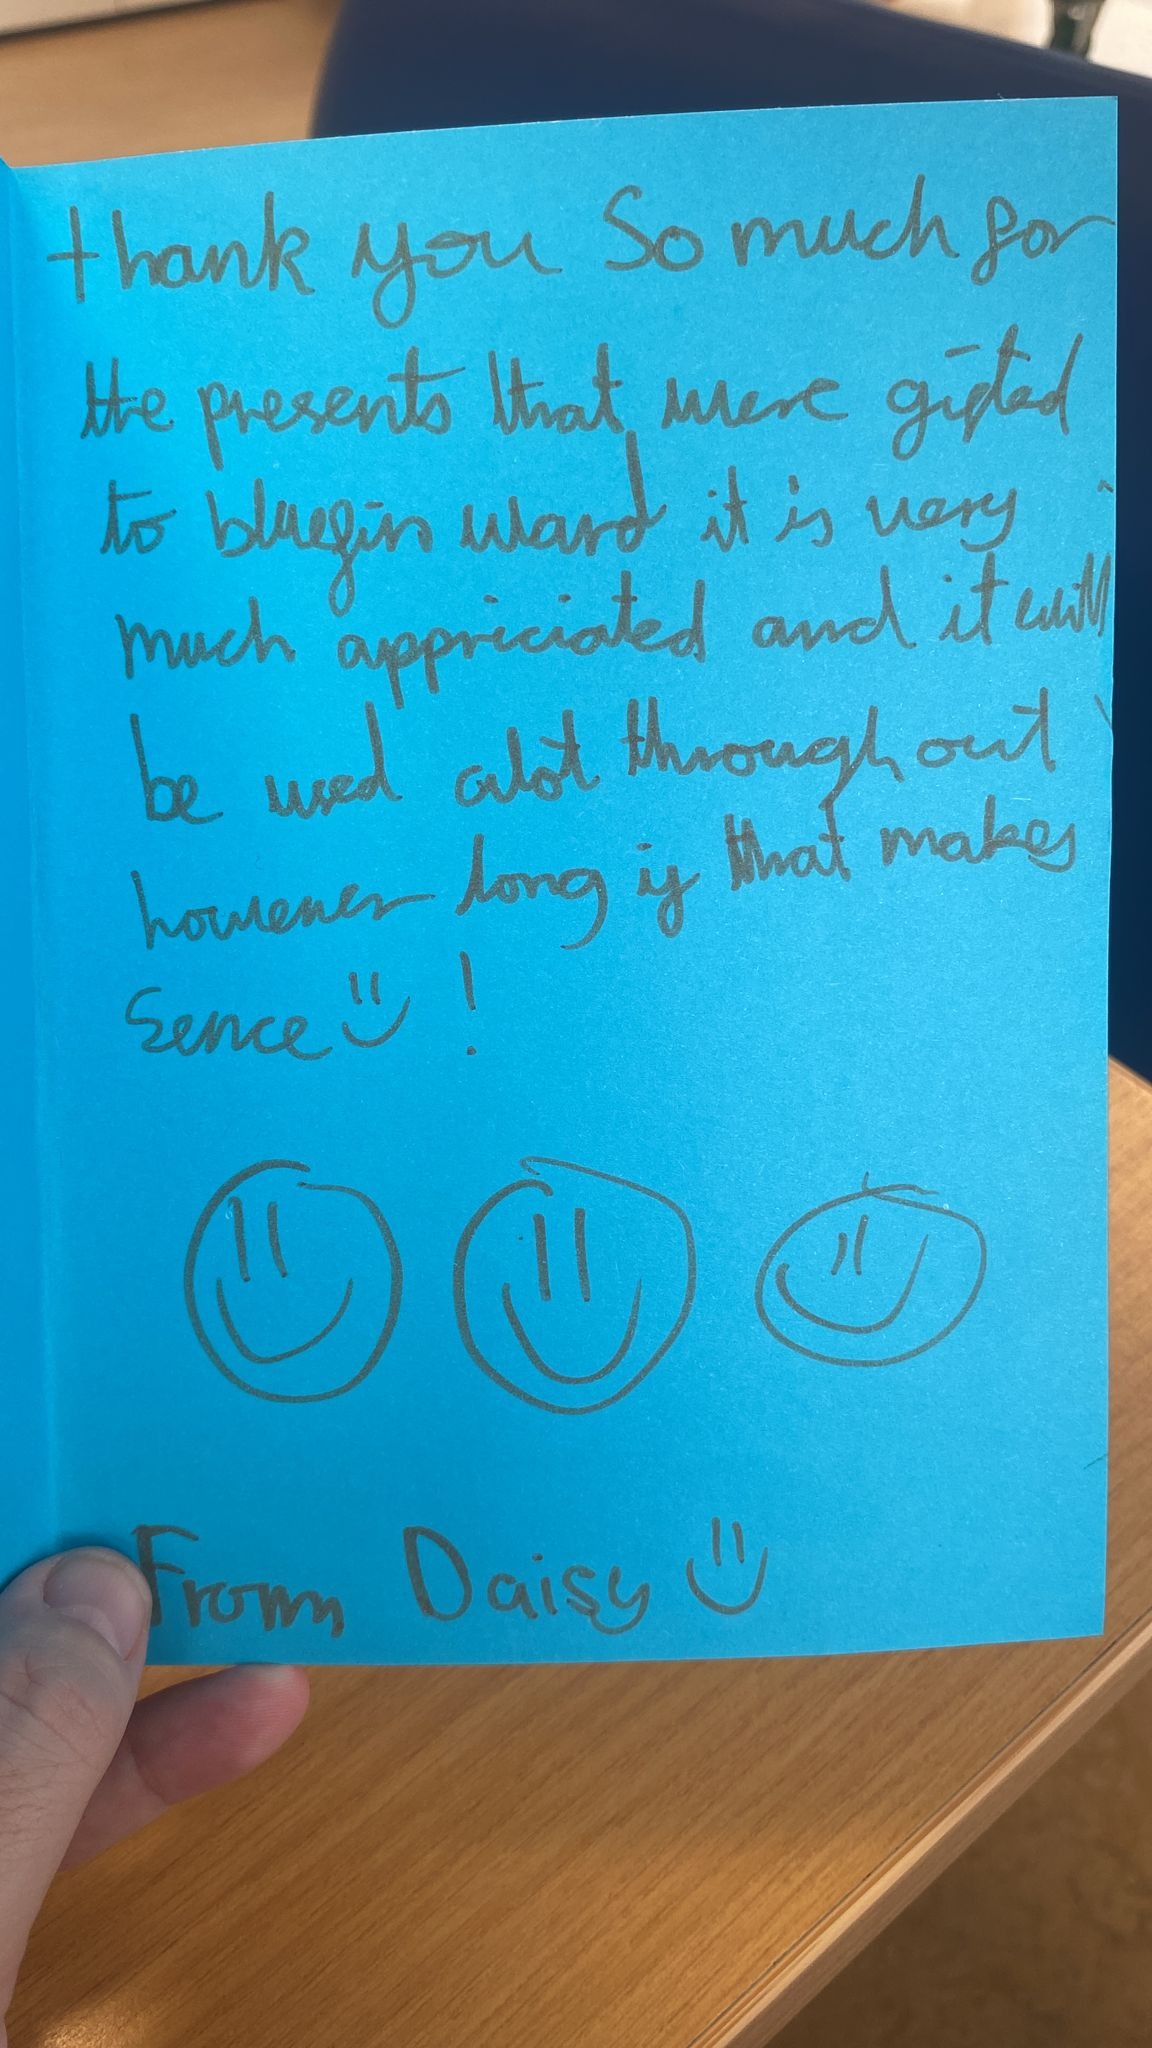 thank you So much for
the presents that were gifted
to bluefin ward it is very
much appriciated and it will
be used alot through out
however long if that makes
Sence !
From Daisy